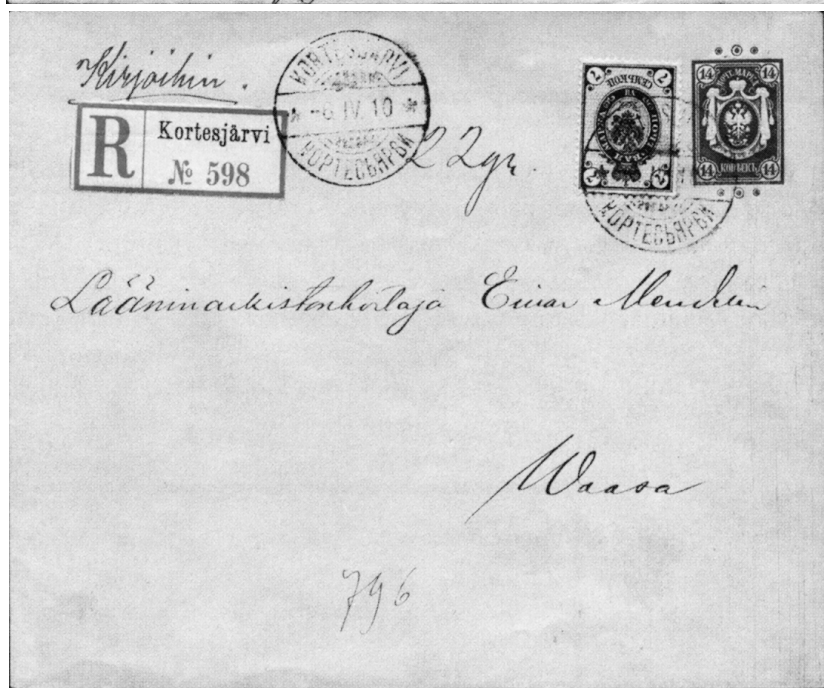 "Kirjoihin.
R Kortesjärvi
№ 598
KORTESJÄRVI
-6.IV.10
КОРТЕСЬЯРВИ
22gr
7 7
СЕМЬ КОП.
14 14
14 КОПѢЕКЪ 14
КОРТЕСЬЯРВИ
Lääninarkistonhoitaja Einar
Waasa
796